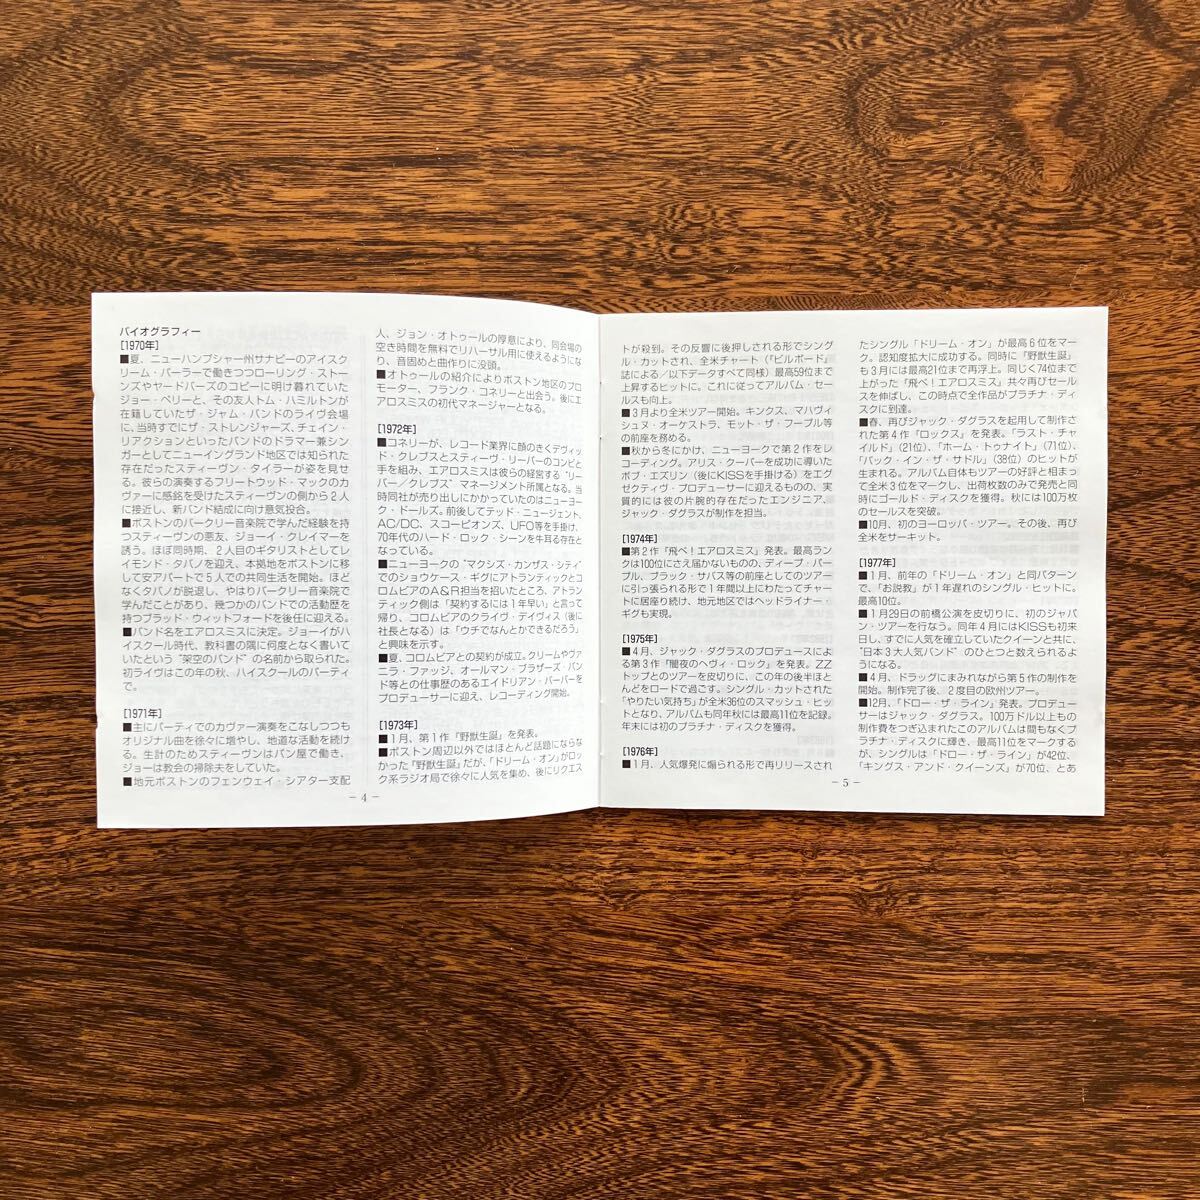 バイオグラフィー
[1970年]
■夏、ニューハンプシャー州サナピーのアイスク
リーム・パーラーで働きつつローリング・ストー
ンズやヤードバーズのコピーに明け暮れていた
ジョー・ペリーと、その友人トム・ハミルトンが
在籍していたザ・ジャム・バンドのライヴ会場
に、当時すでにザ・ストレンジャーズ、チェイン・
リアクションといったバンドのドラマー兼シン
ガーとしてニューイングランド地区では知られた
存在だったスティーヴン・タイラーが姿を見せ
る。彼らの演奏するフリートウッド・マックのカ
ヴァーに感銘を受けたスティーヴンの側から2人
に接近し、新バンド結成に向け意気投合。
■ボストンのバークリー音楽院で学んだ経験を持
つスティーヴンの悪友、ジョーイ・クレイマーを
誘う。ほぼ同時期、2人目のギタリストとしてレ
イモンド・タバノを迎え、本拠地をボストンに移
して安アパートで5人での共同生活を開始。ほど
なくタバノが脱退し、やはりバークリー音楽院で
学んだことがあり、幾つかのバンドでの活動歴を
持つブラッド・ウィットフォードを後任に迎える。
■バンド名をエアロスミスに決定。ジョーイがハ
イスクール時代、教科書の隅に何度となく書いて
いたという“架空のバンド”の名前から取られた。
初ライヴはこの年の秋、ハイスクールのパーティ
で。
[1971年]
■主にパーティでのカヴァー演奏をこなしつつも
オリジナル曲を徐々に増やし、地道な活動を続け
る。生計のためスティーヴンはパン屋で働き、
ジョーは教会の掃除夫をしていた。
■地元ボストンのフェンウェイ・シアター支配
人、ジョン・オトゥールの厚意により、同会場の
空き時間を無料でリハーサル用に使えるようにな
り、音固めと曲作りに没頭。
■オトゥールの紹介によりボストン地区のプロ
モーター、フランク・コネリーと出会う。後にエ
アロスミスの初代マネージャーとなる。
[1972年]
■コネリーが、レコード業界に顔のきくデヴィッ
ド・クレブスとスティーヴ・リーバーのコンビと
手を組み、エアロスミスは彼らの経営する“リー
バー／クレブス”マネージメント所属となる。当
時同社が売り出しにかかっていたのはニューヨー
ク・ドールズ。前後してテッド・ニュージェント、
AC/DC、スコーピオンズ、UFO等を手掛け、
70年代のハード・ロック・シーンを牛耳る存在と
なっている。
■ニューヨークの“マクシズ・カンザス・シティ”
でのショウケース・ギグにアトランティックとコ
ロムビアのA&R担当を招いたところ、アトラン
ティック側は「契約するには1年早い」と言って
帰り、コロムビアのクライヴ・デイヴィス（後に
社長となる）は「ウチでなんとかできるだろう」
と興味を示す。
■夏、コロムビアとの契約が成立。クリームやヴァ
ニラ・ファッジ、オールマン・ブラザーズ・バン
ド等との仕事歴のあるエイドリアン・バーバーを
プロデューサーに迎え、レコーディング開始。
[1973年]
■1月、第1作『野獣生誕』を発表。
■ボストン周辺以外ではほとんど話題にならな
かった『野獣生誕』だが、「ドリーム・オン」がロッ
ク系ラジオ局で徐々に人気を集め、後にリクエス
－4－
トが殺到。その反響に後押しされる形でシング
ル・カットされ、全米チャート（「ビルボード」
誌による／以下データすべて同様）最高59位まで
上昇するヒットに。これに従ってアルバム・セー
ルスも向上。
■3月より全米ツアー開始。キンクス、マハヴィ
シュヌ・オーケストラ、モット・ザ・フープル等
の前座を務める。
■秋から冬にかけ、ニューヨークで第2作をレ
コーディング。アリス・クーパーを成功に導いた
ボブ・エズリン（後にKISSを手掛ける）をエグ
ゼクティヴ・プロデューサーに迎えるものの、実
質的には彼の片腕的存在だったエンジニア、
ジャック・ダグラスが制作を担当。
[1974年]
■第2作『飛べ！エアロスミス』発表。最高ラン
クは100位にさえ届かないものの、ディープ・パー
プル、ブラック・サバス等の前座としてのツアー
に引っ張られる形で1年間以上にわたってチャー
トに居座り続け、地元地区ではヘッドライナー・
ギグも実現。
[1975年]
■4月、ジャック・ダグラスのプロデュースによ
る第3作『闇夜のヘヴィ・ロック』を発表。ZZ
トップとのツアーを皮切りに、この年の後半ほと
んどをロードで過ごす。シングル・カットされた
「やりたい気持ち」が全米36位のスマッシュ・ヒッ
トとなり、アルバムも同年秋には最高11位を記録。
年末には初のプラチナ・ディスクを獲得。
[1976年]
■1月、人気爆発に煽られる形で再リリースされ
たシングル「ドリーム・オン」が最高6位をマー
ク。認知度拡大に成功する。同時に『野獣生誕』
も3月には最高21位まで再浮上。同じく74位まで
上がった『飛べ！エアロスミス』共々再びセール
スを伸ばし、この時点で全作品がプラチナ・ディ
スクに到達。
■春、再びジャック・ダグラスを起用して制作さ
れた第4作『ロックス』を発表。「ラスト・チャ
イルド」（21位）、「ホーム・トゥナイト」（71位）、
「バック・イン・ザ・サドル」（38位）のヒットが
生まれる。アルバム自体もツアーの好評と相まっ
て全米3位をマークし、出荷枚数のみで発売と同
時にゴールド・ディスクを獲得。秋には100万枚
のセールスを突破。
■10月、初のヨーロッパ・ツアー。その後、再び
全米をサーキット。
[1977年]
■1月、前年の「ドリーム・オン」と同パターン
で、「お説教」が1年遅れのシングル・ヒットに。
最高10位。
■1月29日の前橋公演を皮切りに、初のジャパ
ン・ツアーを行なう。同年4月にはKISSも初来
日し、すでに人気を確立していたクイーンと共に、
“日本3大人気バンド”のひとつと数えられるよ
うになる。
■4月、ドラッグにまみれながら第5作の制作を
開始。制作完了後、2度目の欧州ツアー。
■12月、『ドロー・ザ・ライン』発表。プロデュー
サーはジャック・ダグラス。100万ドル以上もの
制作費をつぎ込まれたこのアルバムは間もなくプ
ラチナ・ディスクに輝き、最高11位をマークする
が、シングルは「ドロー・ザ・ライン」が42位、
「キングス・アンド・クイーンズ」が70位、とあ
－5－